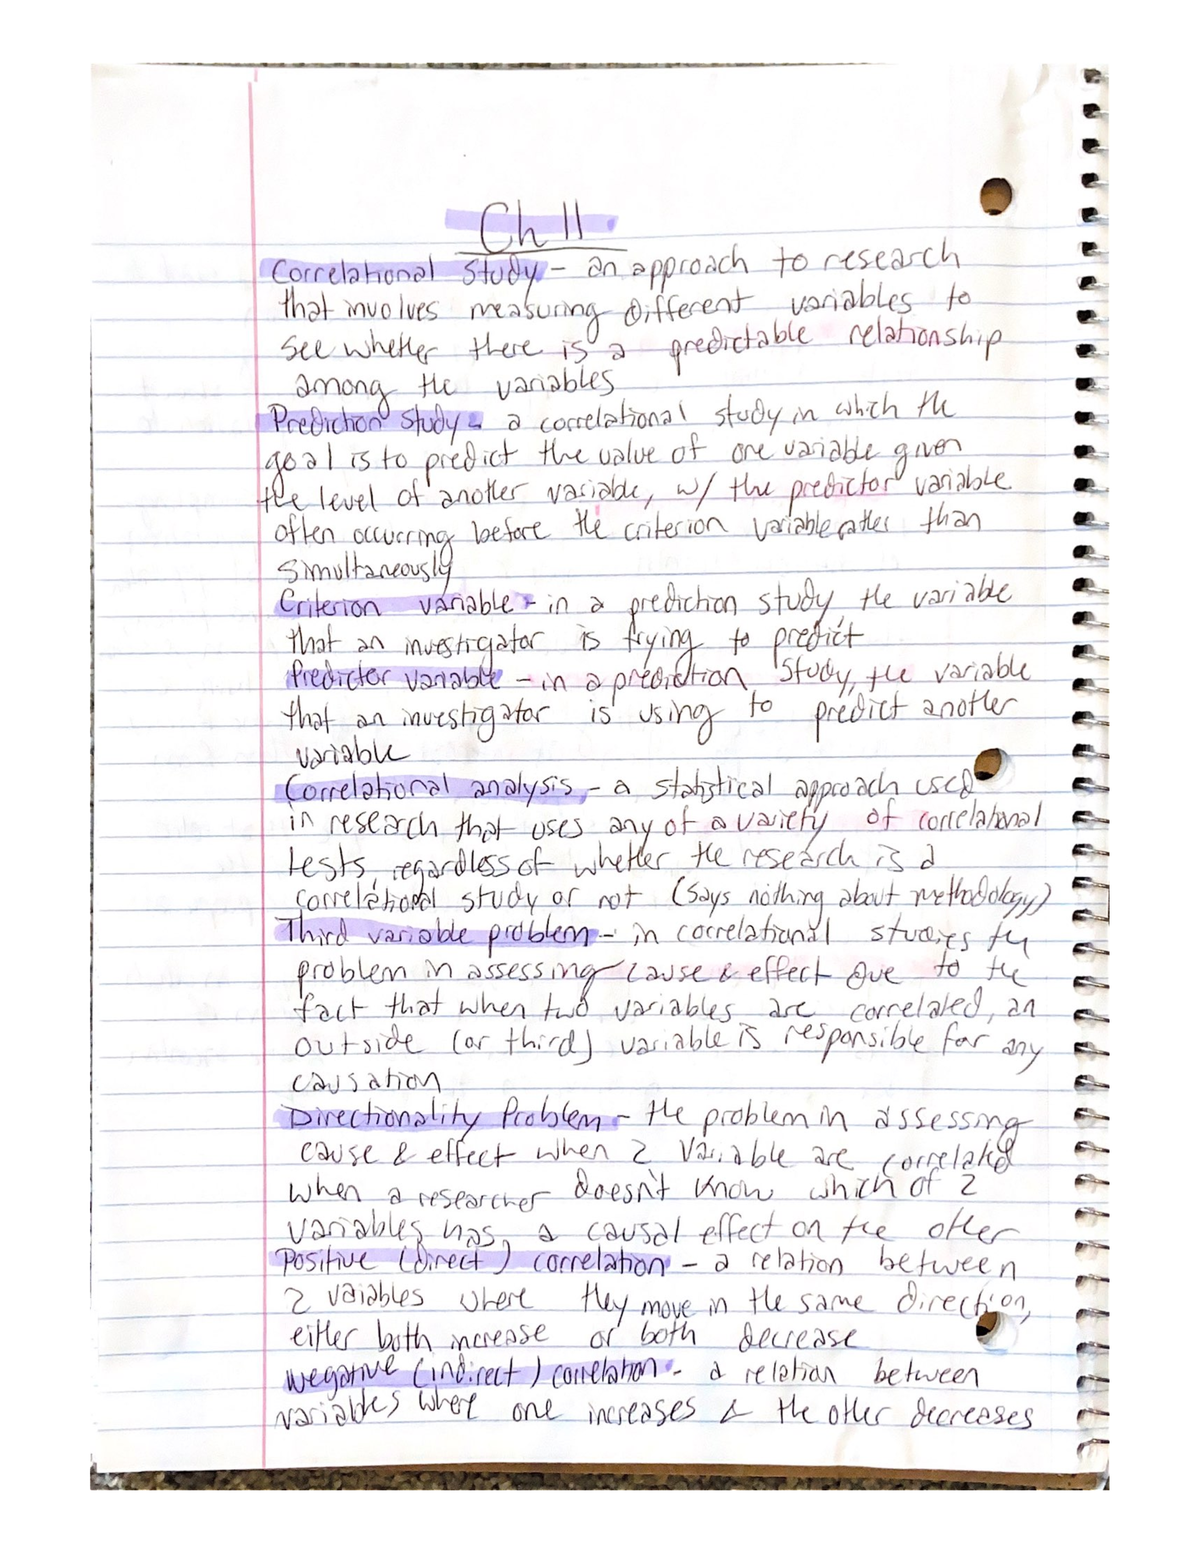 Ch 11
Correlational study - an approach to research
that involves measuring different variables to
see whether there is a predictable relationship
among the variables
Prediction study - a correlational study in which the
goal is to predict the value of one variable given
the level of another variable, w/ the predictor variable
often occurring before the criterion variable rather than
simultaneously
Criterion variable - in a prediction study, the variable
that an investigator is trying to predict
Predictor variable - in a prediction study, the variable
that an investigator is using to predict another
variable
Correlational analysis - a statistical approach used
in research that uses any of a variety of correlational
tests, regardless of whether the research is a
correlational study or not (says nothing about methodology)
Third variable problem - in correlational studies the
problem in assessing cause & effect due to the
fact that when two variables are correlated, an
outside (or third) variable is responsible for any
causation
Directionality Problem - the problem in assessing
cause & effect when 2 variable are correlated
when a researcher doesn't know which of 2
variables has a causal effect on the other
Positive (direct) correlation - a relation between
2 vaiables where they move in the same direction,
either both increase or both decrease
Negative (indirect) correlation - a relation between
variables where one increases & the other decreases